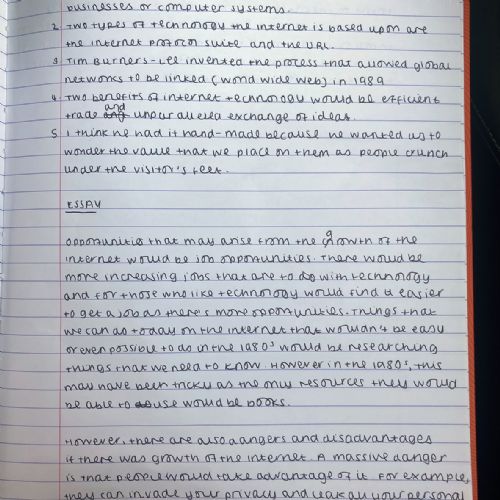 businesses or computer systems.
2 Two types of technology the internet is based upon are
the internet protocol suite and the URL.
3 Tim Burners-Lee invented the process that allowed global
networks to be linked (world wide web) in 1989
4 Two benefits of internet technology would be efficient
trade and unparalleled exchange of ideas.
5 I think he had it hand-made because he wanted us to
wonder the value that we place on them as people crunch
under the visitor's feet.
ESSAY
Opportunities that may arise from the growth of the
internet would be job opportunities. There would be
more increasing jobs that are to do with technology
and for those who like technology would find it easier
to get a job as there's more opportunities. Things that
we can do today on the internet that wouldn't be easy
or even possible to do in the 1980s would be researching
things that we need to know. However in the 1980s, this
may have been tricky as the only resources they would
be able to use would be books.
However, there are also dangers and disadvantages
if there was growth of the internet. A massive danger
is that people would take advantage of it. For example,
they can invade your privacy and leak all your personal